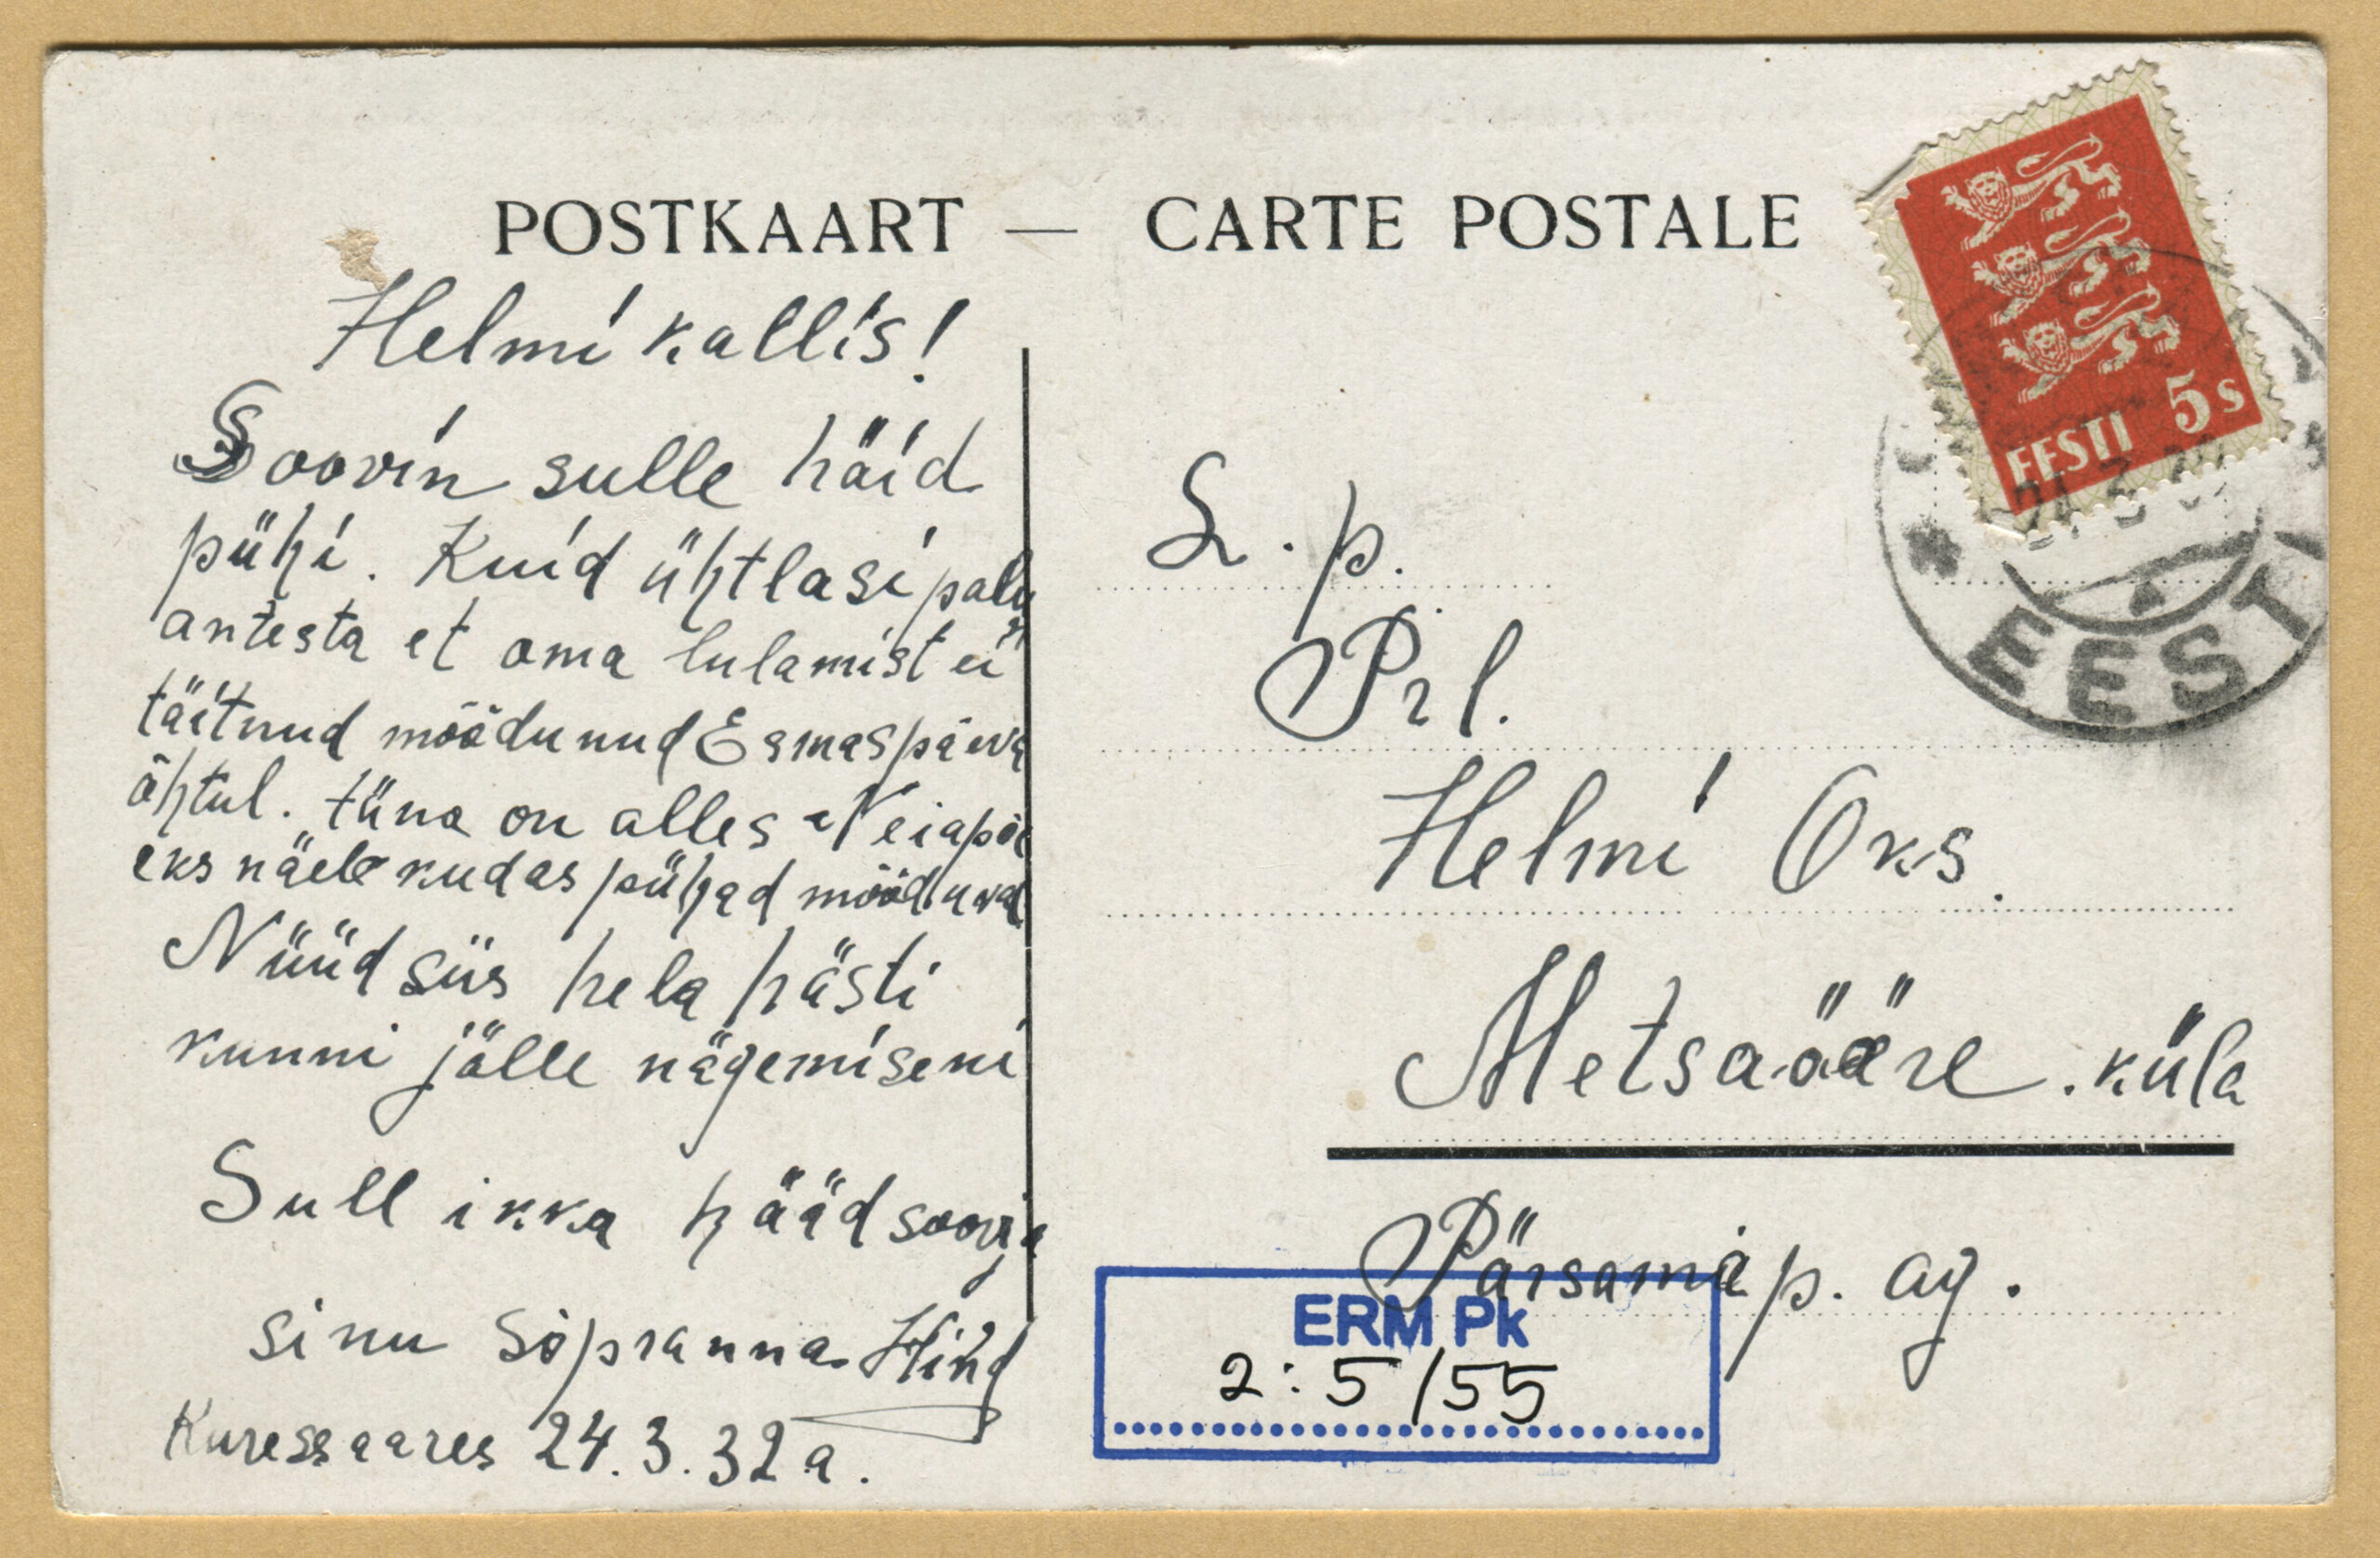 POSTKAART — CARTE POSTALE
Helmi kallis!
Soovin sulle häid
pühi. Kuid ühtlasi palu
antesta et oma lulamist ei
täitnud möödunud Esmaspäeva
õhtul. tüna on alles Neiapäe
eks näeb kudas pühad mööduvad
Nüüd siis hela hästi
kunni jälle nägemiseni
Sull ikka hääd soovja
sinu sõpranna Hind
Kuressaares 24.3.32 a.
EESTI 5s
EESTI
L. p.
Prl.
Helmi Oks.
Metsaääre. küla
Pärsama p. ag.
ERM Pk
2:5/55